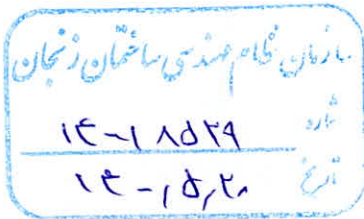 سازمان نظام مهندسی ساختمان زنجان
شماره ۱۴۰۱۸۵۲۹
تاریخ ۱۴۰۱٫۵٫۲۰